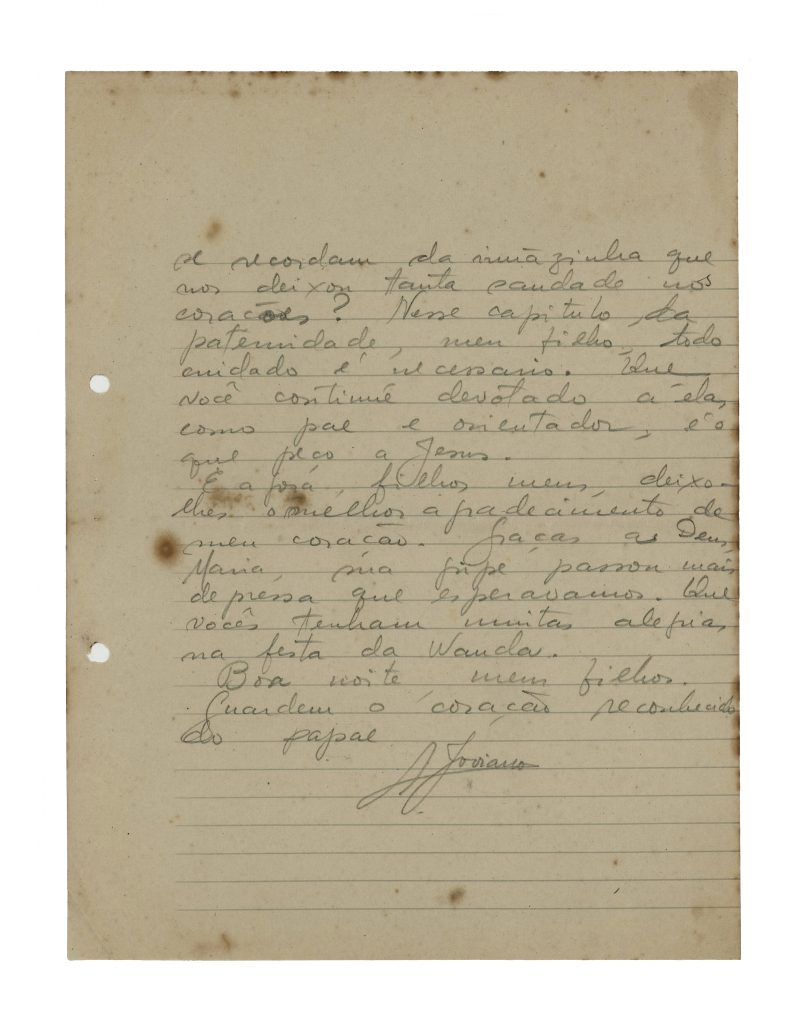 se recordam da irmãzinha que
nos deixou tanta saudade nos
corações? Nesse capitulo da
paternidade, meu filho, todo
cuidado é necessario. Que
você continúe devotado a éla,
como pae e orientador, é o
que peço a Jesus.
E agora, filhos meus, deixo-
lhes o melhor agradecimento de
meu coração. Graças a Deus,
Maria, sua gripe passou mais
depressa que esperavamos. Que
vocês tenham muitas alegrias
na festa da Wanda.
Boa noite meus filhos.
Guardem o coração reconhecido
do papae
A. Joviano